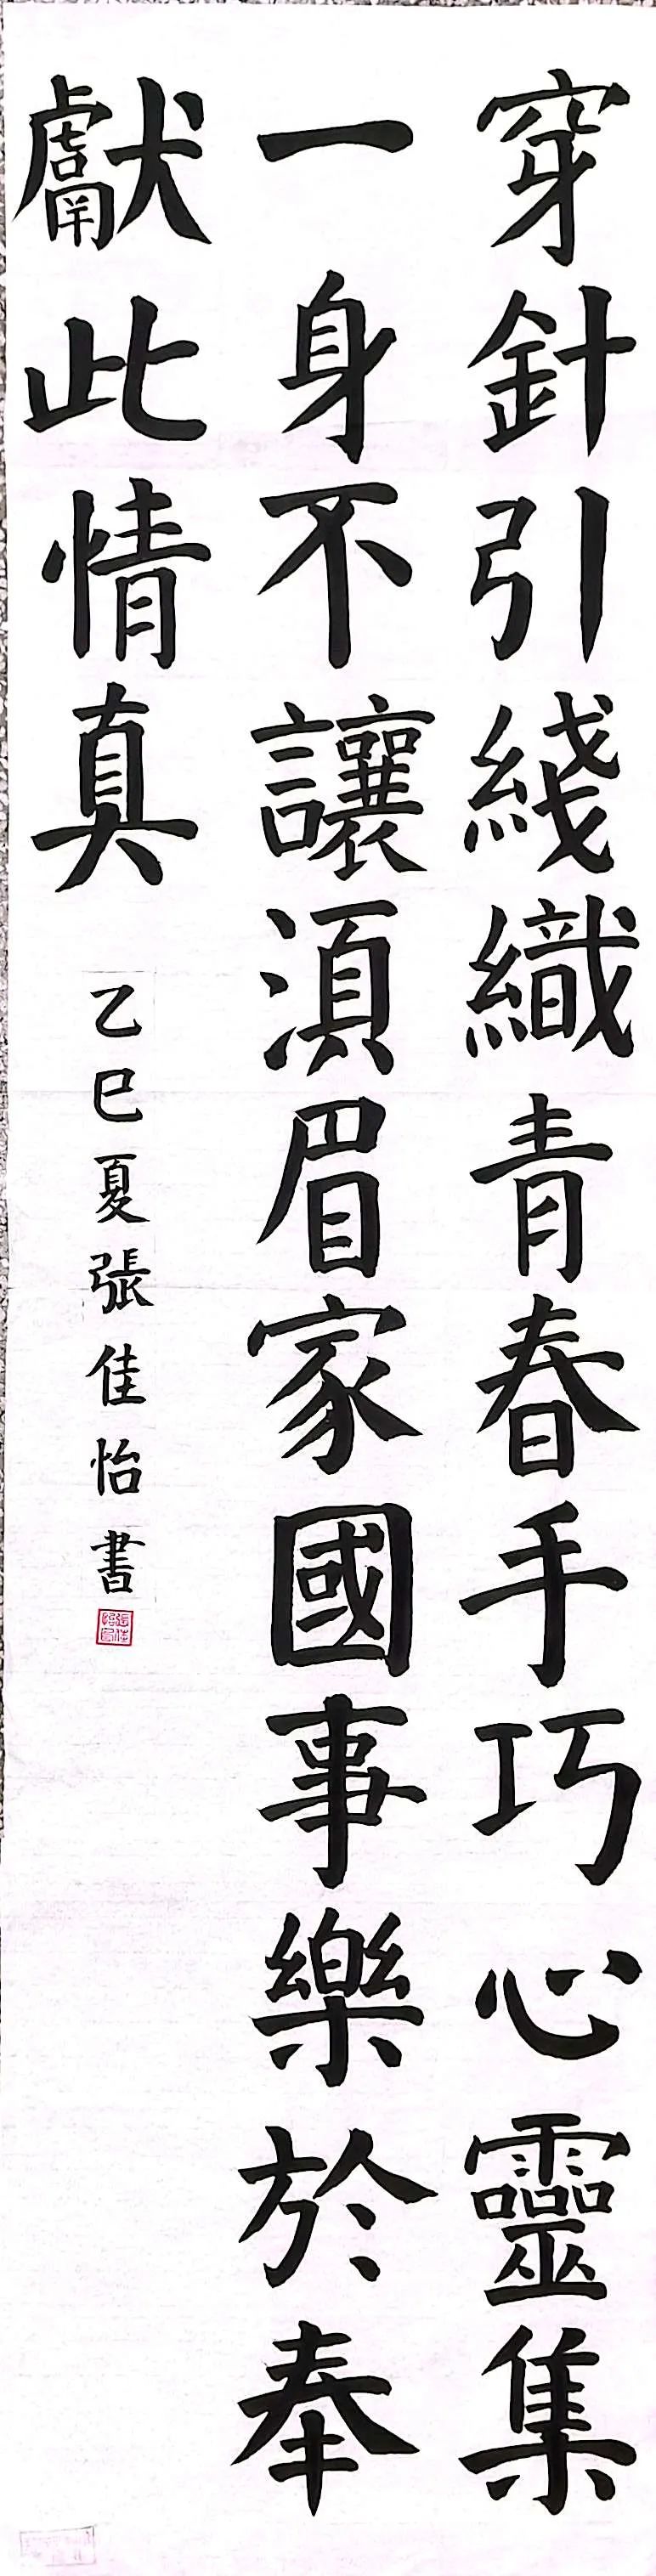 穿針引綫織青春手巧心靈集
一身不讓湏眉家國事樂於奉
獻此情真
乙巳夏張佳怡書